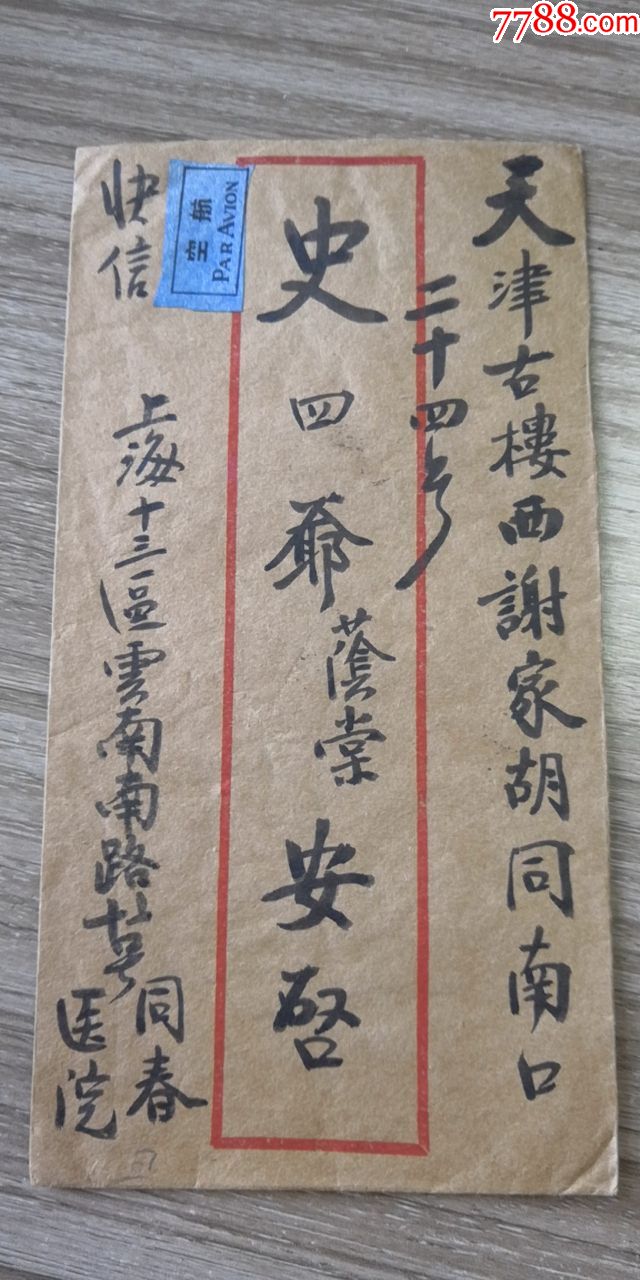 7788.com
天津古樓西謝家胡同南口
二十四号
史四爺蔭棠安啓
快信
航空
PAR AVION
上海十三區雲南南路
同春
医院